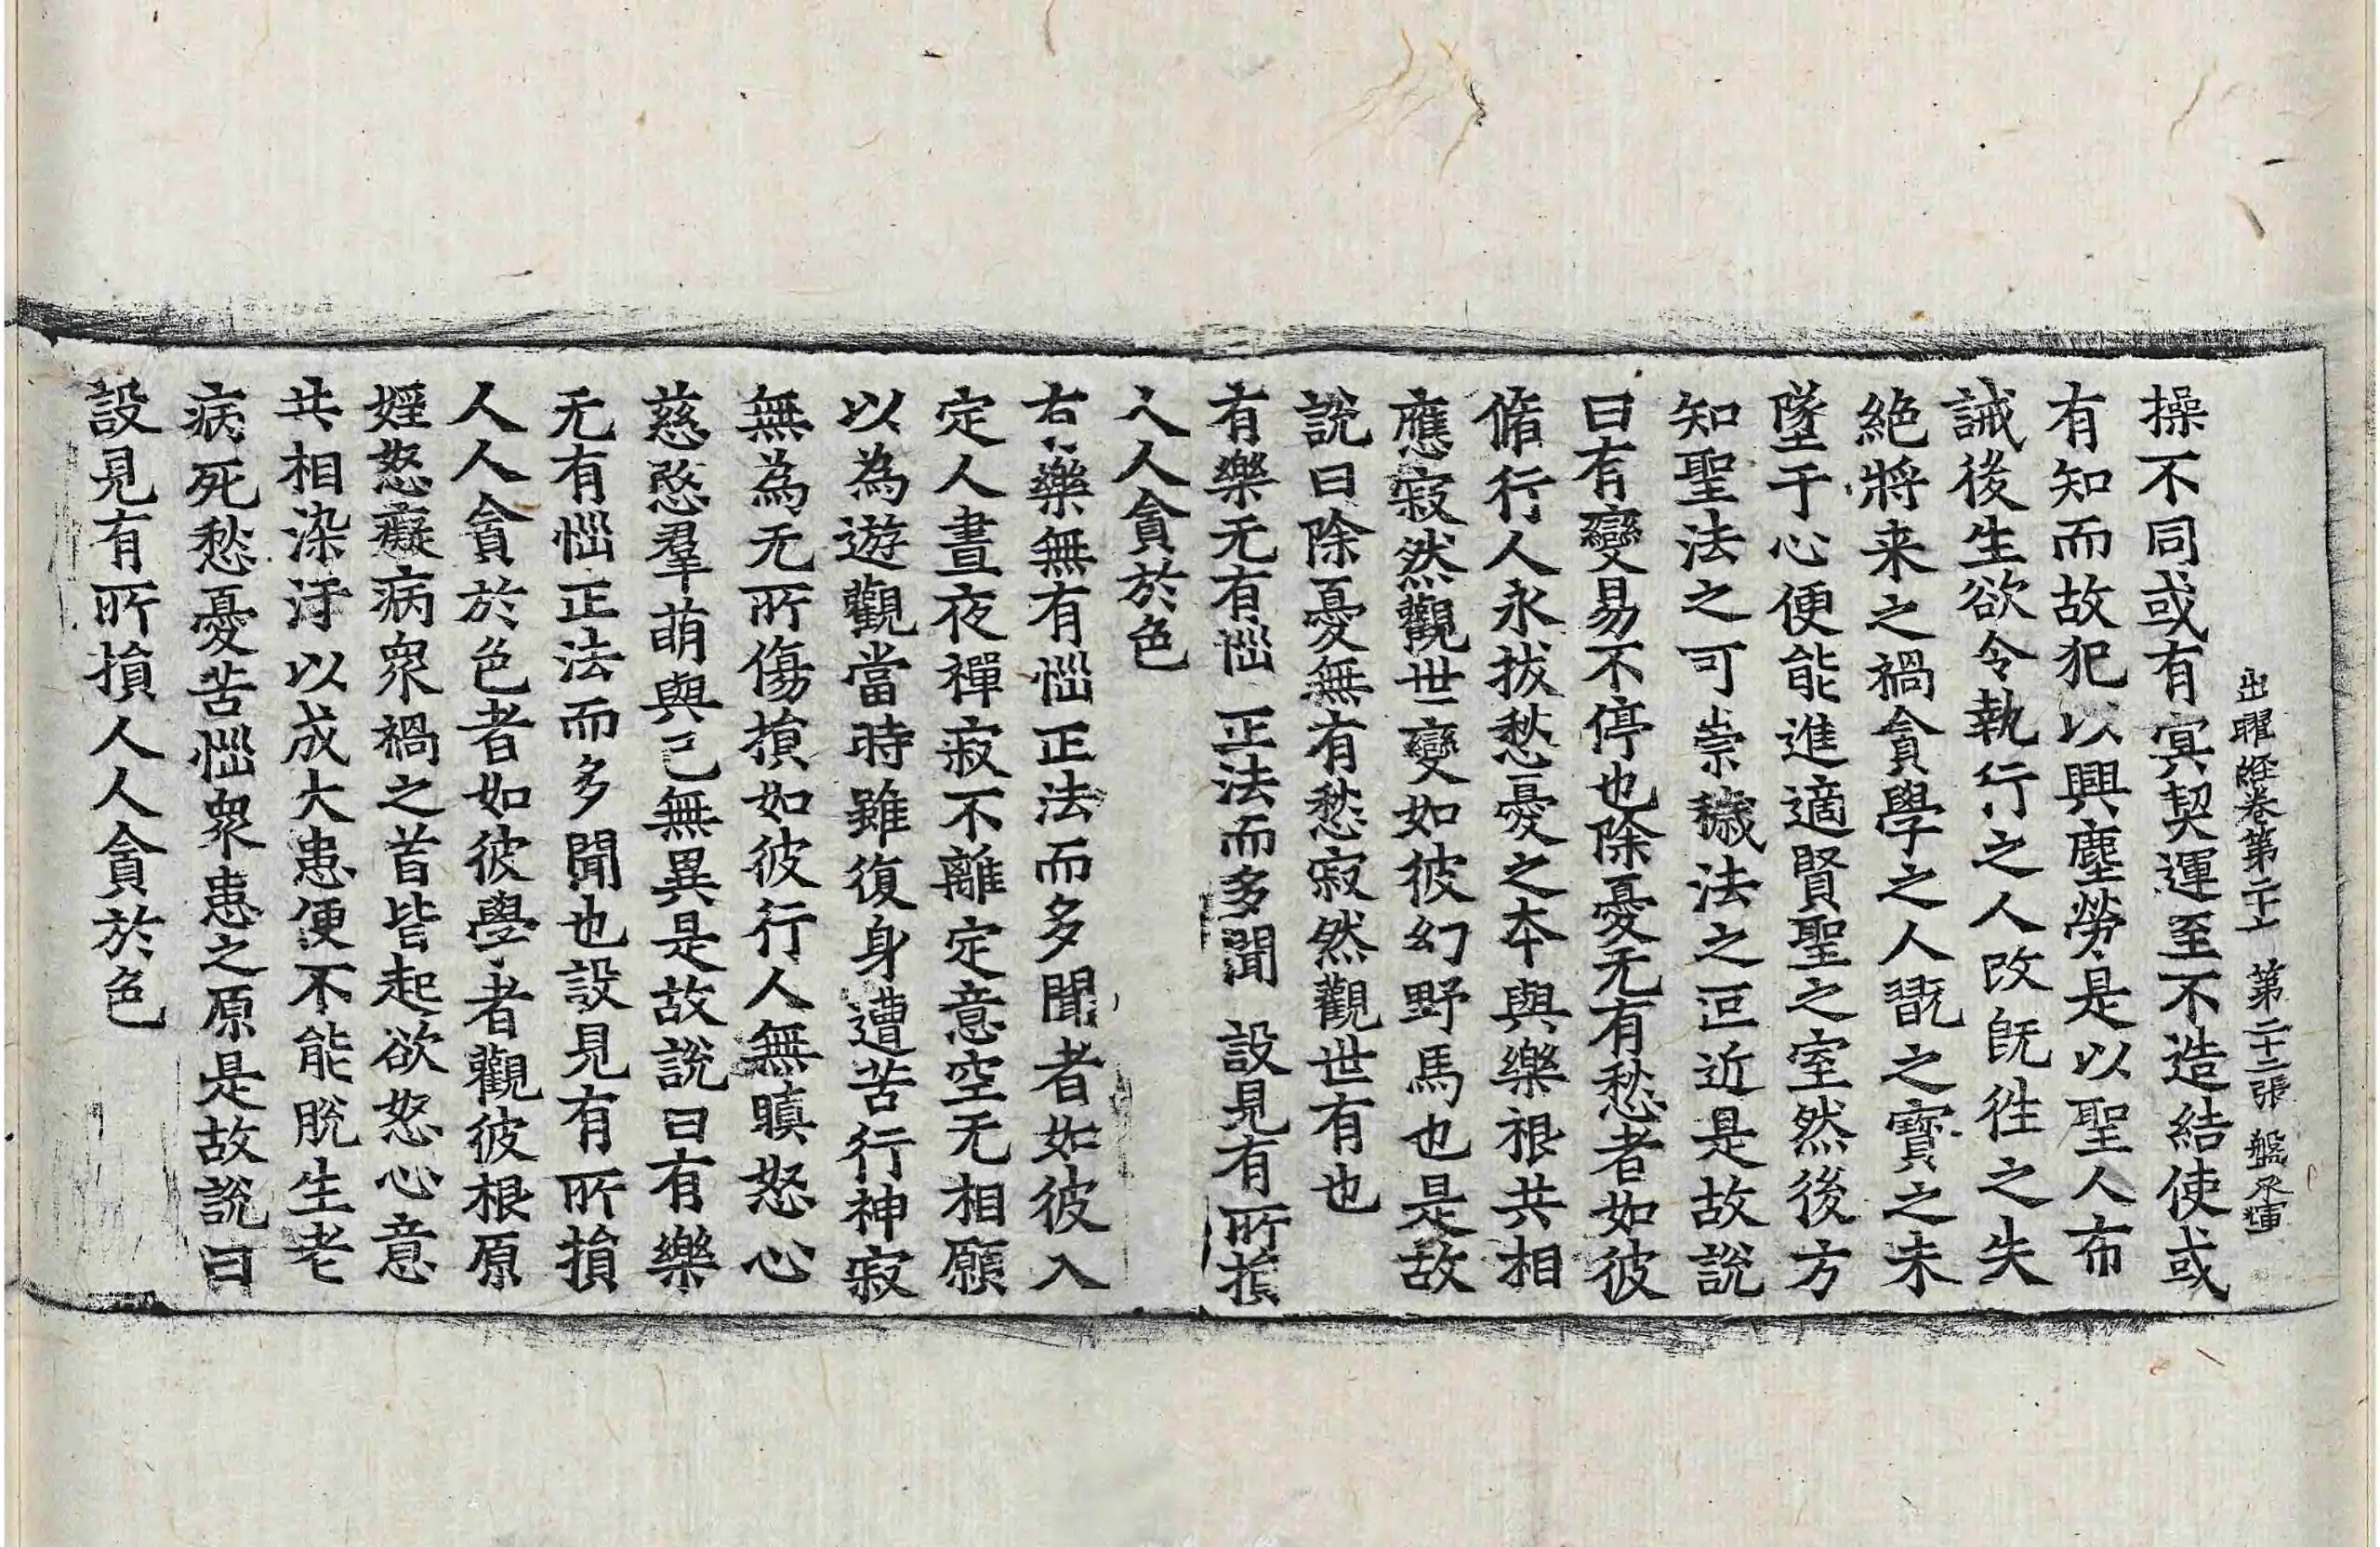 出曜經卷第二十上 第二十二張 盤
操不同或有寘契運至不造結使或
有知而故犯以興塵勞是以聖人布
誡後生欲令執行之人改旣徃之失
絶將来之禍貪學之人翫之寳之未
墜于心便能進適賢聖之室然後方
知聖法之可崇穢法之叵近是故說
曰有變易不停也除憂无有愁者如彼
脩行人永拔愁憂之本與樂根共相
應寂然觀世變如彼幻野馬也是故
說曰除憂無有愁寂然觀世有也
有樂无有惱 正法而多聞 設見有所損
人人貪於色
有樂無有惱正法而多聞者如彼入
定人晝夜禪寂不離定意空无相願
以為遊觀當時雖復身遭苦行神寂
無為无所傷損如彼行人無瞋怒心
慈愍羣萌與己無異是故說曰有樂
无有惱正法而多聞也設見有所損
人人貪於色者如彼學者觀彼根原
婬怒癡病衆禍之首皆起欲怒心意
共相染汙以成大患便不能脫生老
病死愁憂苦惱衆患之原是故說曰
設見有所損人人貪於色